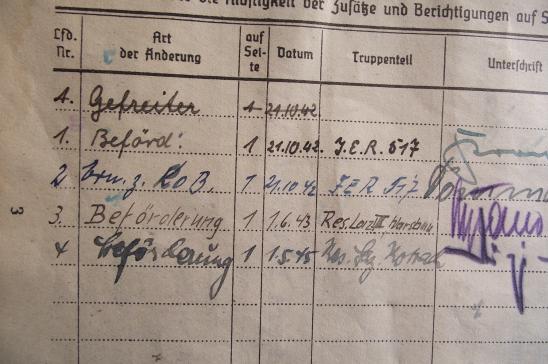 die Richtigkeit der Zusätze und Berichtigungen auf S
Lfd. Nr. Art der Änderung auf Sei-te Datum Truppenteil Unterschrift
1. Gefreiter 1 21.10.42
1. Beförd: 1 21.10.42. J.E.R. 517
2 Ern. z. RoB. 1 21.10.42 JER 517
3. Beförderung 1 1.6.43 Res. Laz. III
4 Beförderung 1 1.5.45 Res.
3